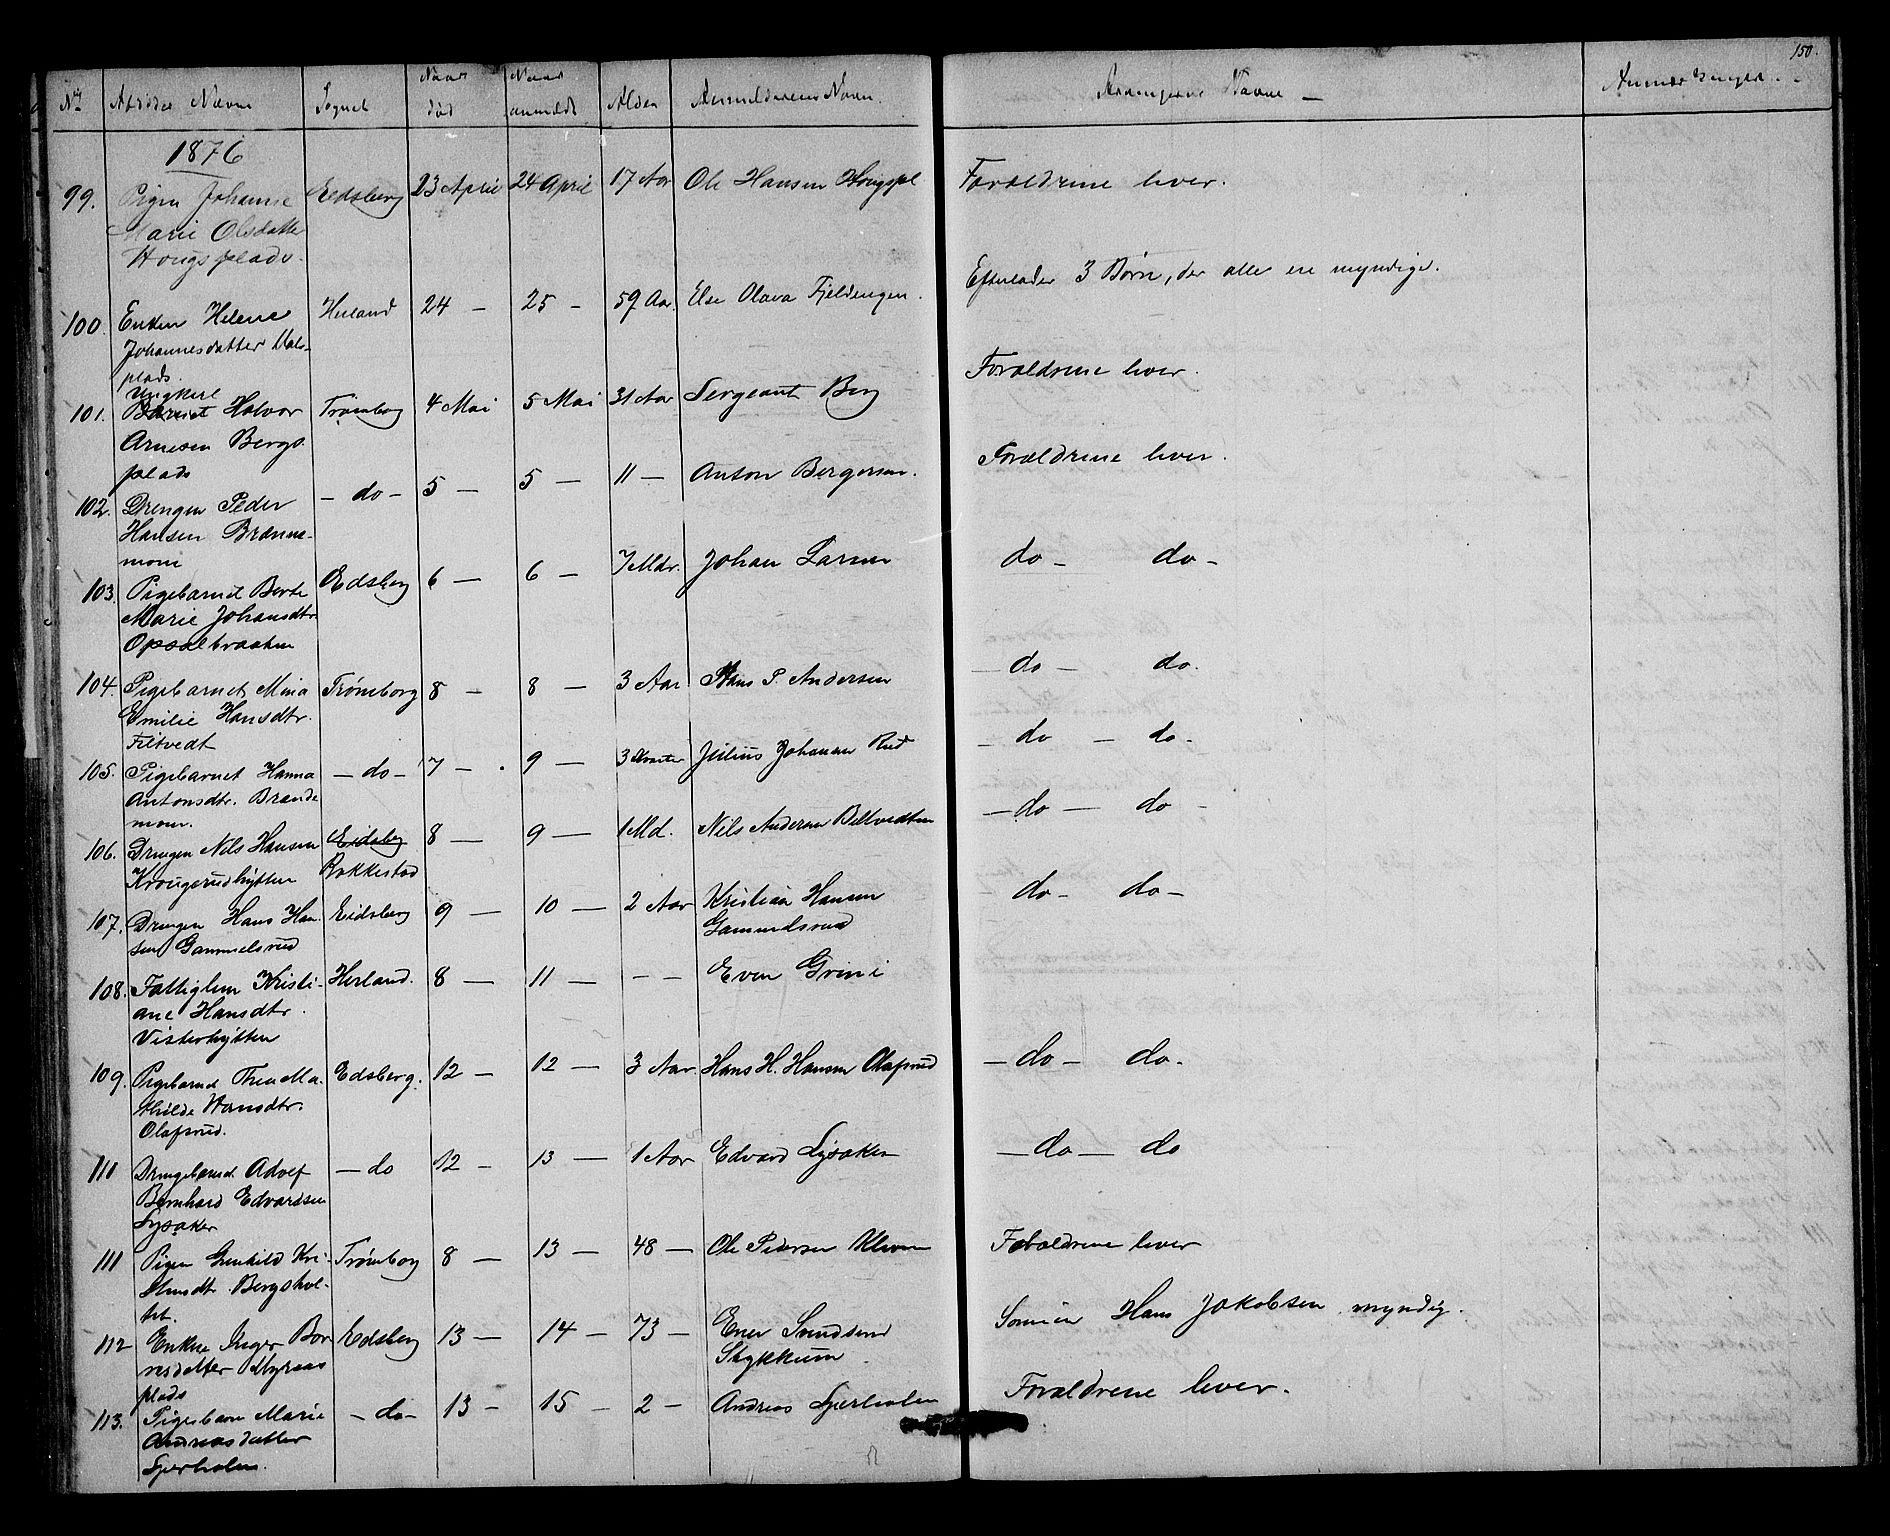 150.
No Afdødes Navn Sognet Naar død Naar anmeldt Alder Anmelderens Navn. Arvingernes Navne — Anmærkninger.
1876
99. Pigen Johanne Eidsberg 23 April 24 April 17 Aar Ole Hansen Hougspl Forældrene lever.
Marie Olsdatter
Hougsplads.
100. Enken Helene Herland 24 — 25 — 59 Aar Else Olava Fjeldengen. Efterlader 3 Børn, der alle ere myndige.
Johannesdatter
plads.
Ungkarl
101. Halvor Trømborg 4 Mai 5 Mai 31 Aar Sergeant Berg Forældrene lever.
Arnesen Bergs
plads
102. Drengen Peder — do — 5 — 5 — 11 — Anton Bergersen. Forældrene lever.
Hansen Brænne-
moen
103. Pigebarnet Berte Edsberg 6 — 6 — 7 Mdr. Johan Larsen do — do —
Marie Johansdtr
Opsalbraaten
104. Pigebarnet Mina Trømborg 8 — 8 — 3 Aar Hans P. Andersen — do — do.
Emilie Hansdtr.
Filtvedt
105. Pigebarnet Hanna — do — 7 — 9 — Julius Johansen Rud — do — do —
Antonsdtr. Brænde
moen.
106. Drengen Nils Hansen Eidsberg 8 — 9 — 1 Md. Nils Andersen — do — do —
Krougerudhytten Rakkestad
107. Drengen Hans Han- Eidsberg 9 — 10 — 2 Aar Kristian Hansen do — do —
sen Gammelsrud Gammelsrud
108. Fattiglem Kristi- Herland. 8 — 11 — — — Even Grini
ane Hansdtr.
Visterhytten
109. Pigebarnet Thea Ma- Edsberg. 12 — 12 — 3 Aar. Hans H. Hansen Olafsrud — do — do —
thilde Hansdtr.
Olafsrud.
111 Drengebarnet Adolf — do 12 — 13 — 1 Aar Edvard Lysaker — do — do
Bernhard Edvardsen
Lysaker
111 Pigen Gunhild Kri- Trømborg 8 — 13 — 48 — Ole Pedersen Kleven Forældrene lever
stensdtr. Bergshol-
tet.
112 Enken Inger Edsberg 13 — 14 — 73 — Ener Svendsen Sønnen Hans Jakobsen myndig.
Myraas Stykkum
plads
113. Pigebarn Marie — do — 13 — 15 — 2 — Andreas Forældrene lever.
Andreasdatter